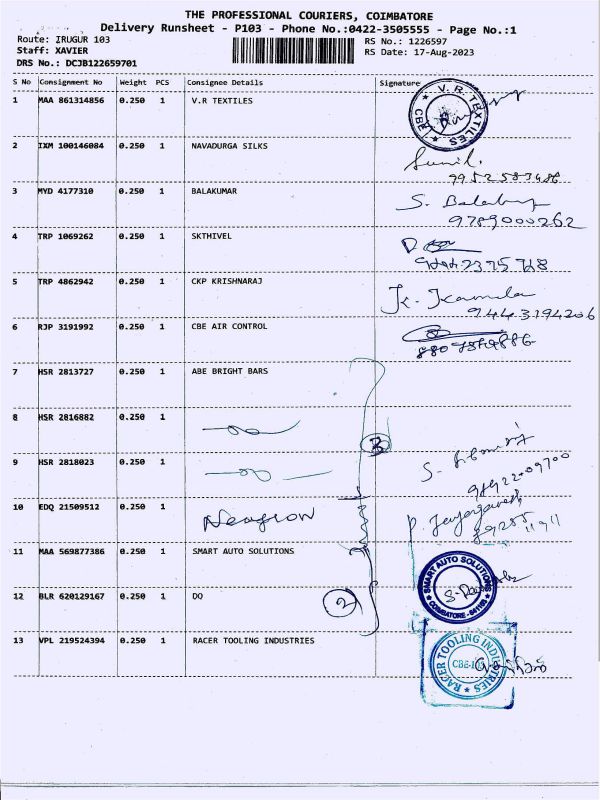 THE PROFESSIONAL COURIERS, COIMBATORE
Delivery Runsheet - P103 - Phone No.:0422-3505555 - Page No.:1
Route: IRUGUR 103
RS No.: 1226597
Staff: XAVIER
RS Date: 17-Aug-2023
DRS No.: DCJB122659701
S No Consignment No Weight PCS Consignee Details Signature
1 MAA 861314856 0.250 1 V.R TEXTILES
V.R. TEXTILES CBE
2 IXM 100146084 0.250 1 NAVADURGA SILKS
Sunil.
3 MYD 4177310 0.250 1 BALAKUMAR
S. 
9789000262
4 TRP 1069262 0.250 1 SKTHIVEL
5 TRP 4862942 0.250 1 CKP KRISHNARAJ
K. Kamala
9443194206
6 RJP 3191992 0.250 1 CBE AIR CONTROL
7 HSR 2813727 0.250 1 ABE BRIGHT BARS
8 HSR 2816882 0.250 1
3
9 HSR 2818023 0.250 1
10 EDQ 21509512 0.250 1
11 MAA 569877386 0.250 1 SMART AUTO SOLUTIONS
SMART AUTO SOLUTIONS COIMBATORE
12 BLR 620129167 0.250 1 DO
2
13 VPL 219524394 0.250 1 RACER TOOLING INDUSTRIES
RACER TOOLING INDUSTRIES